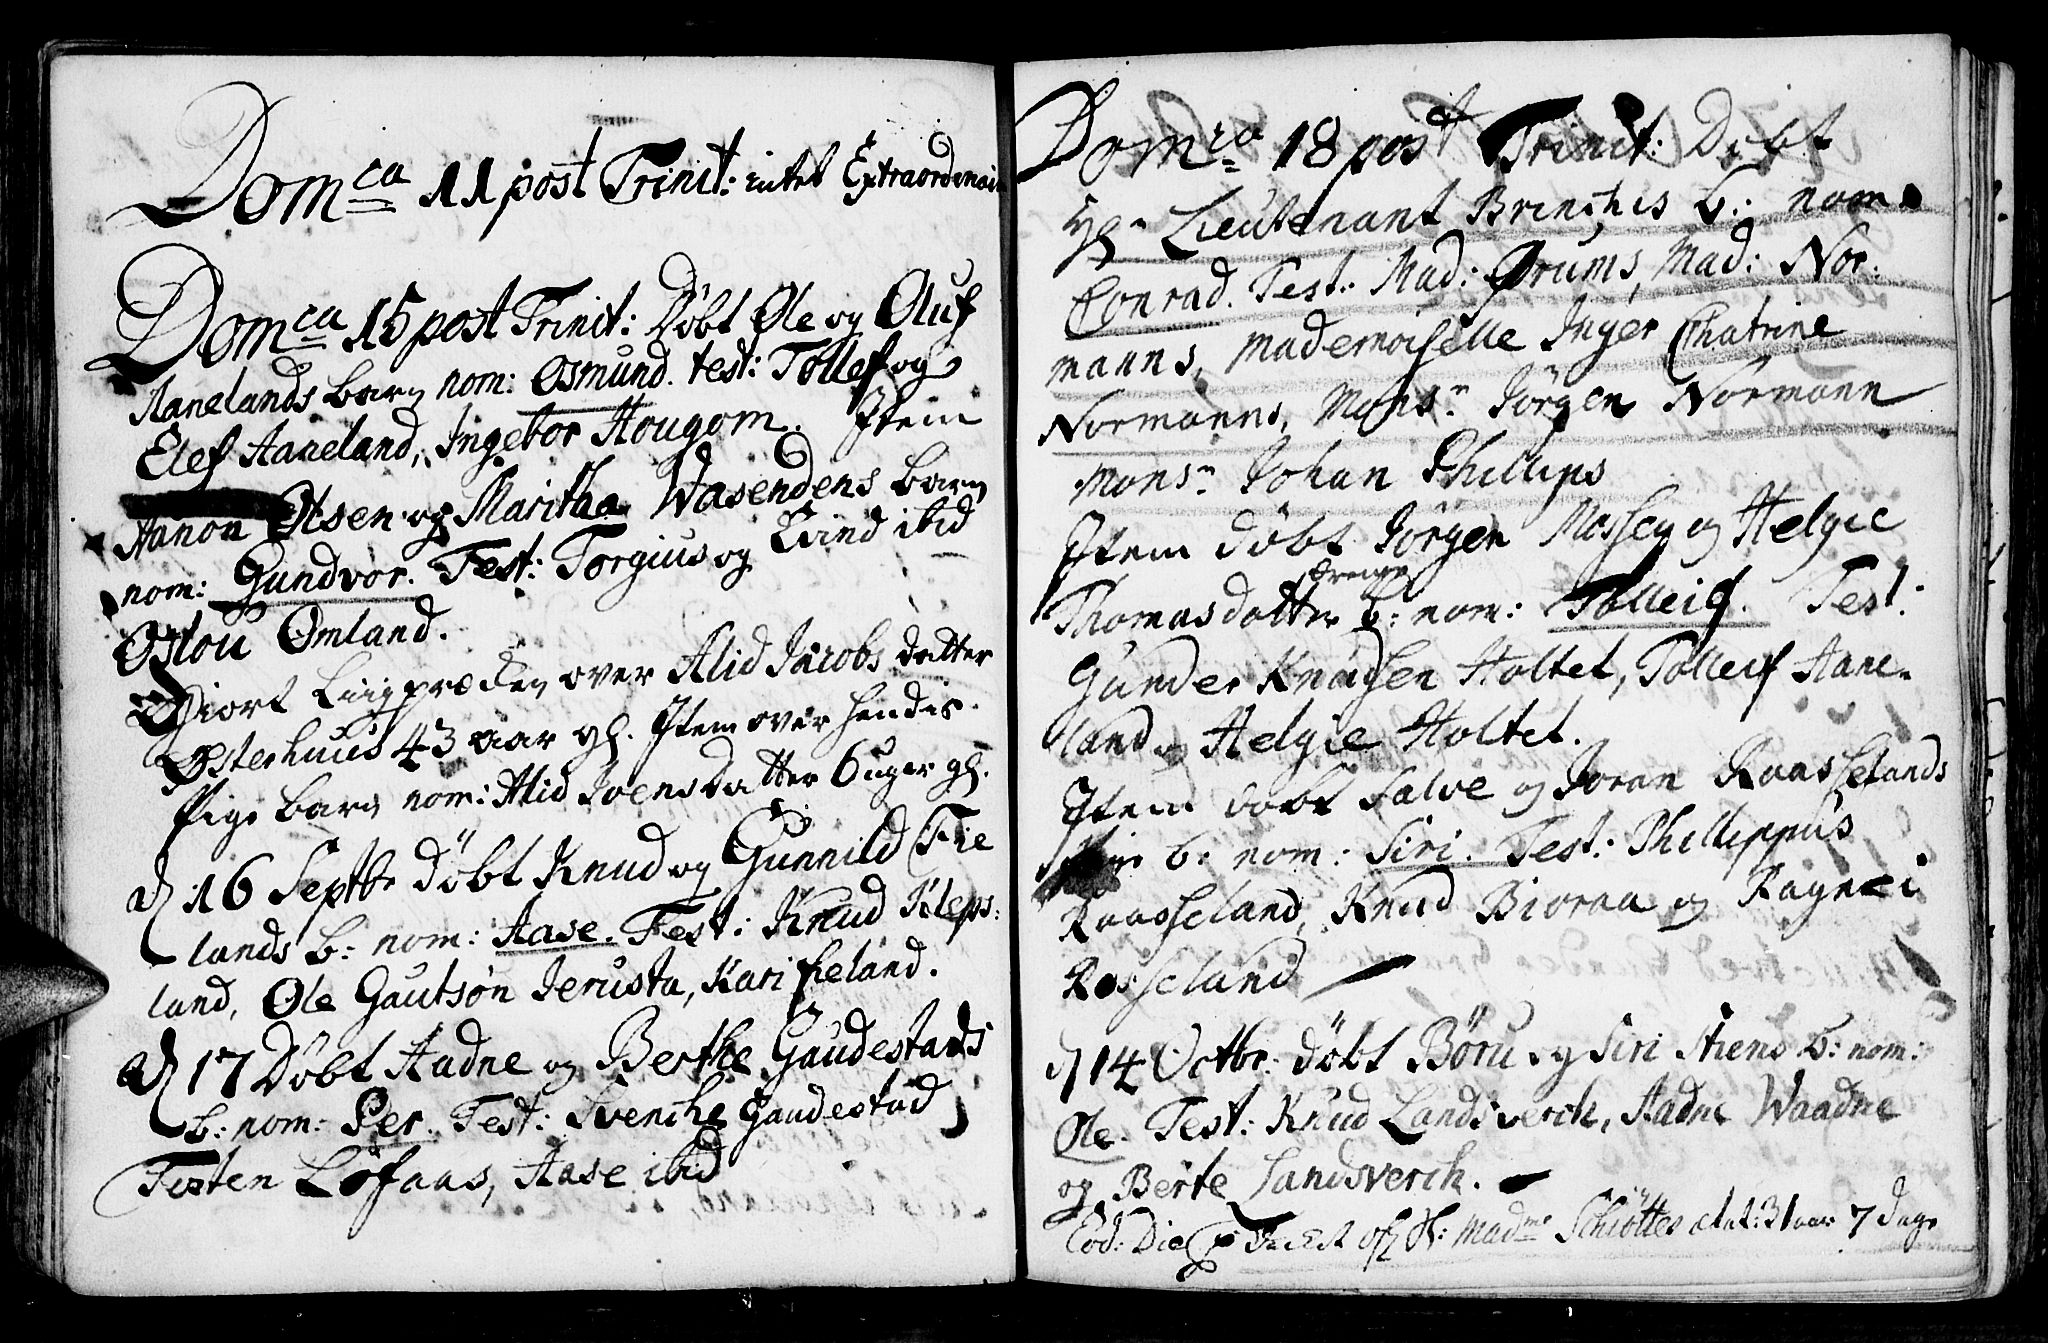 Dom.ca 11 post Trinit: intet Extraordinair
Dom.ca 15 post Trinit: Døbt Ole og Oluf
Aanelands barn nom: Osmund. test: Tollef og
Elef Aaneland, Ingebor Hougom. Item
Aanon Olsen og Maritha Wasendens barn
nom: Gundvor. Test: Torgius og Eivind ibid
Oslou Omland.
Giort Liigprædken over Alid Jacobs datter
Østerhuus 43 aar gl. Item over hendis
Pige barn nom: Alid Ivensdatter 6 uger gl.
d 16 Septbr døbt Knud og Gunnild Fie
lands b: nom: Aase. Test: Knud Kleps:
land, Ole Gautsøn Jerusta, Kari fieland.
d 17 Døbt Aadne og Berthe Gaudestads
b: nom: Per. Test: Svenche Gaudestad
Testen Løfaas, Aase ibid
Dom.ca 18 post Trinit: Døbt
Hr Lieutenant Brinchis b: nom:
Conrad. Test: Mad: Ørums, Mad: Nor:
manns, Mademoiselle Inger Chatrine
Normanns, Monsr Jørgen Normann
Monsr Johan Phillips
Item døbt Jørgen Mossey og Helgie
Thomasdatter drenge
b: nom: Tolleif. Test:
Gunder Knudsen Holtet, Tolleif Aane-
land og Helgie Holtet.
Item døbt Salve og Joran Raasselands
b: nom: Siri. Test: Phillippus
Raasseland, Knud Bioraa og Ragnei
Rosseland
d 14 Octbr: døbt Børu og Siri Stiens b: nom:
Ole. Test: Knud Landsverch, Aadne Waadne
og Berte Landsverch.
Eod: Die Mad.me Schiøttes ætat: 31 aar 7 dage